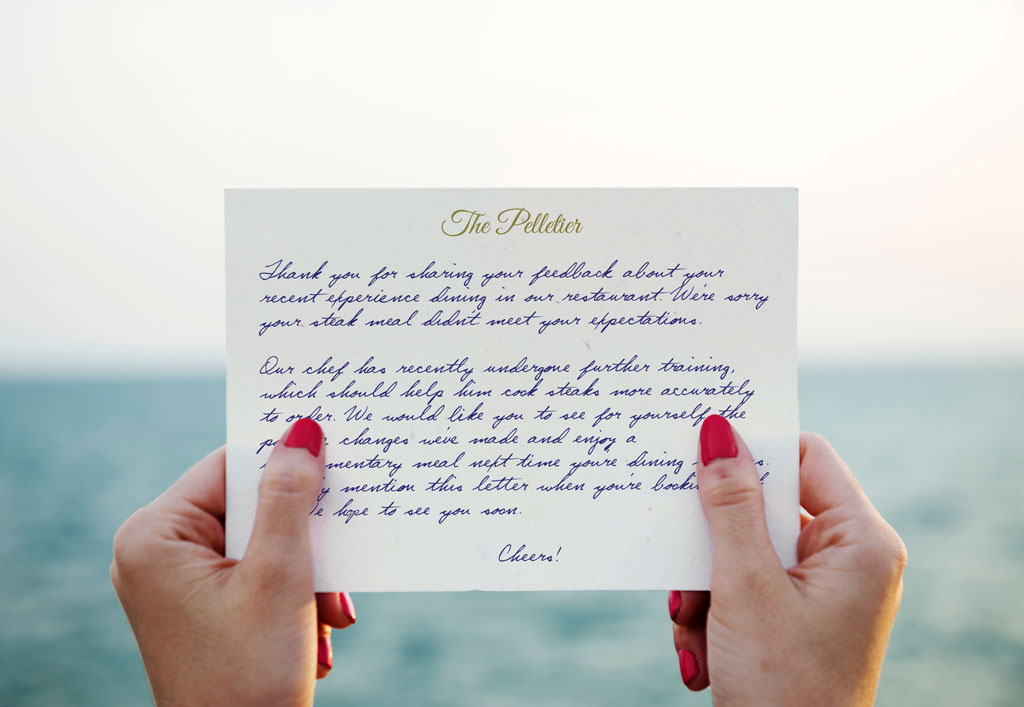 The Pelletier
Thank you for sharing your feedback about your
recent experience dining in our restaurant. We're sorry
your steak meal didn't meet your expectations.
Our chef has recently undergone further training,
which should help him cook steaks more accurately
to order. We would like you to see for yourself the
changes we've made and enjoy a
meal next time you're dining
mention this letter when you're
hope to see you soon.
Cheers!